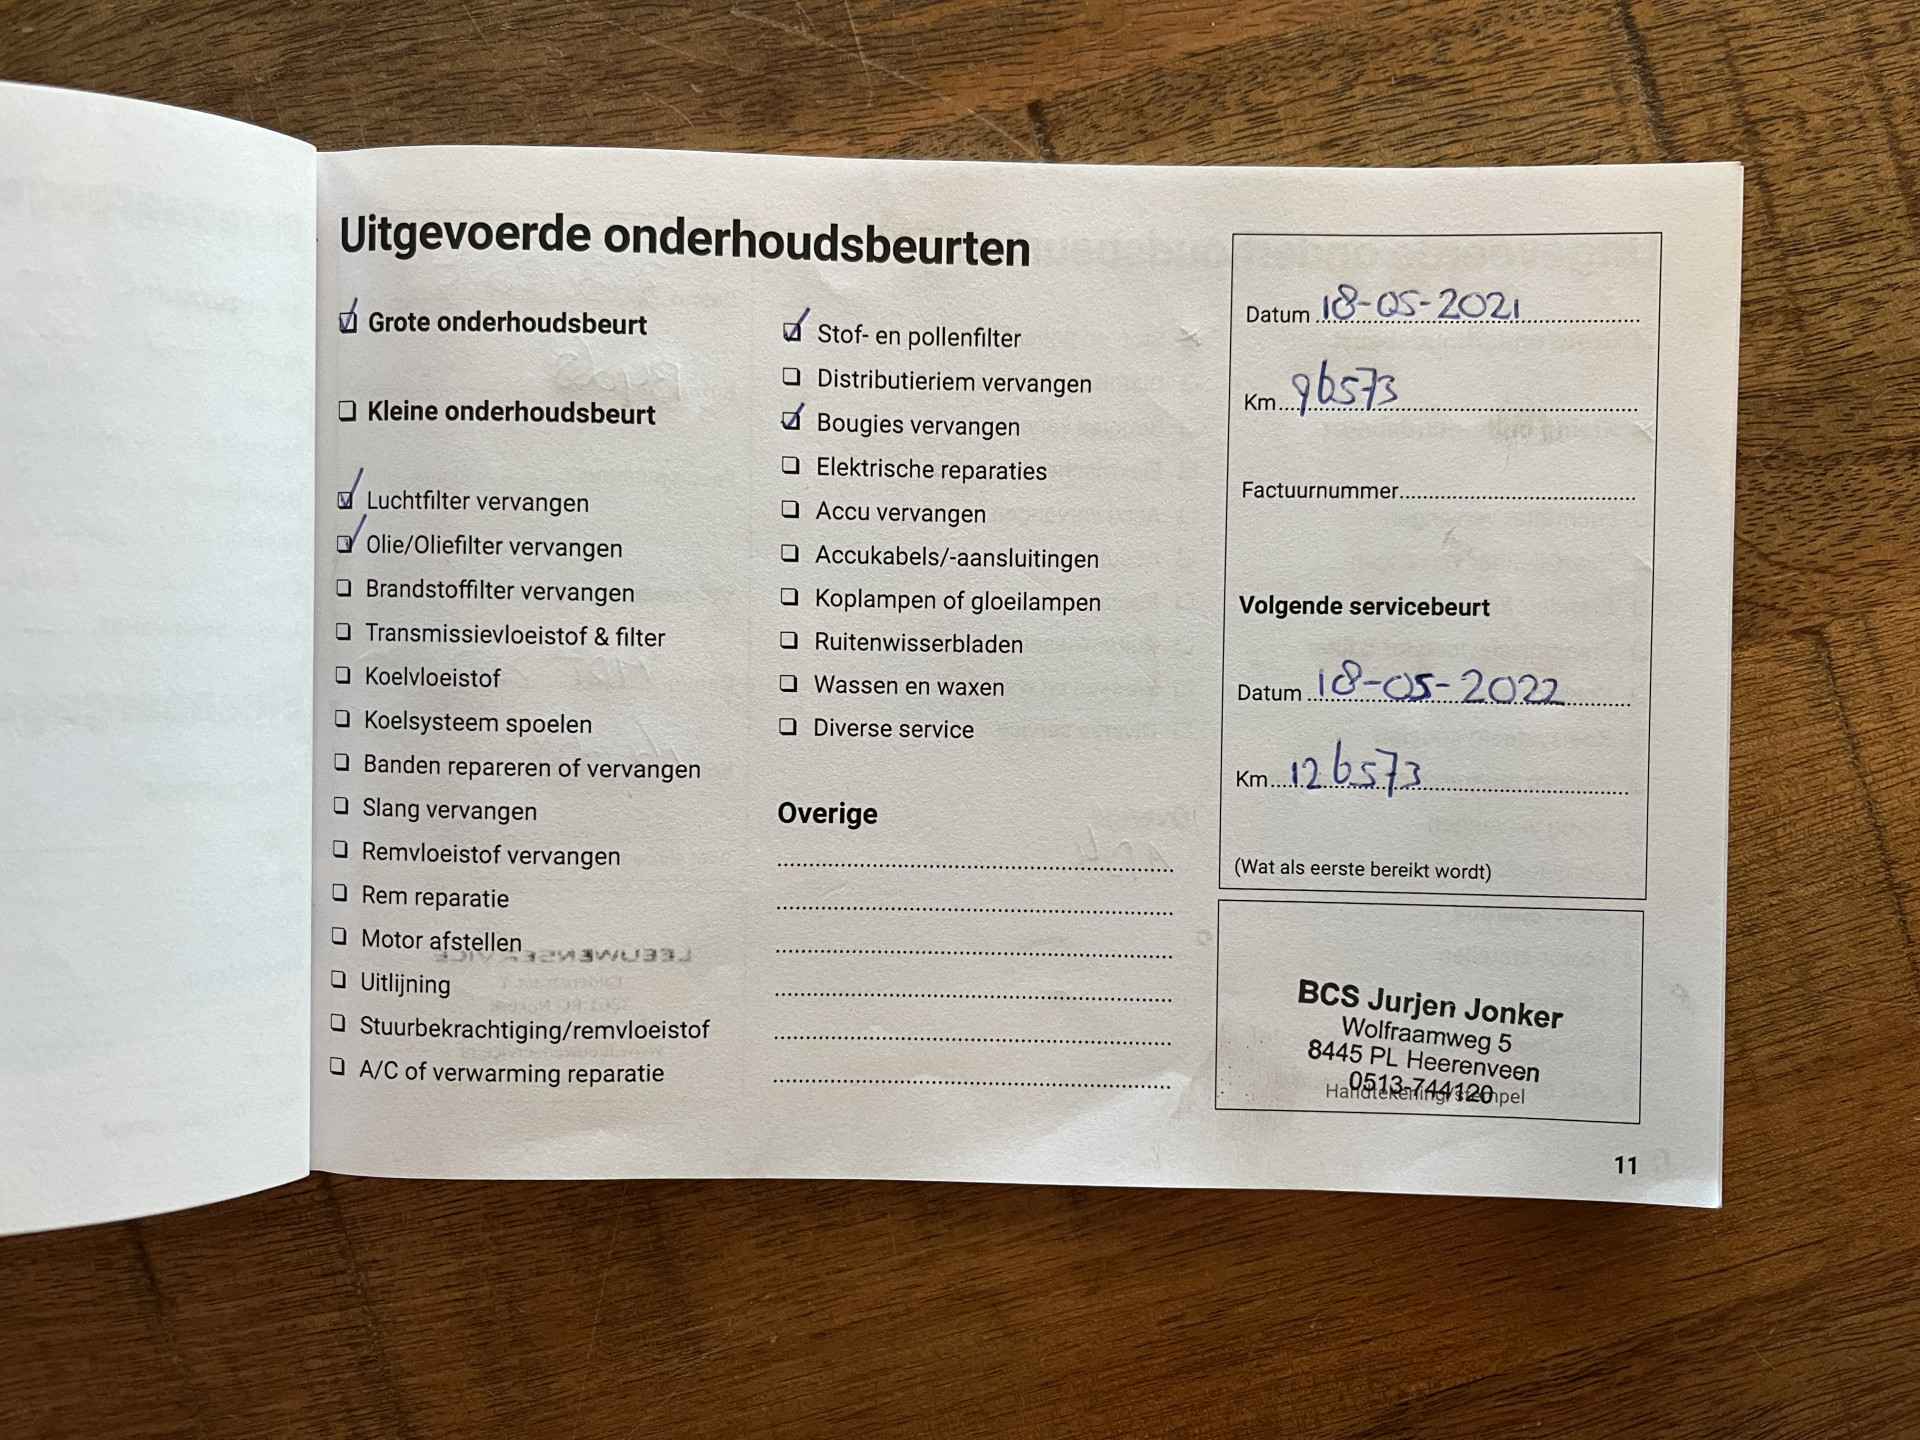 Uitgevoerde onderhoudsbeurten
Grote onderhoudsbeurt
Kleine onderhoudsbeurt
Luchtfilter vervangen
Olie/Oliefilter vervangen
Brandstoffilter vervangen
Transmissievloeistof & filter
Koelvloeistof
Koelsysteem spoelen
Banden repareren of vervangen
Slang vervangen
Remvloeistof vervangen
Rem reparatie
Motor afstellen
Uitlijning
Stuurbekrachtiging/remvloeistof
A/C of verwarming reparatie
Stof- en pollenfilter
Distributieriem vervangen
Bougies vervangen
Elektrische reparaties
Accu vervangen
Accukabels/-aansluitingen
Koplampen of gloeilampen
Ruitenwisserbladen
Wassen en waxen
Diverse service
Overige
Datum 18-05-2021
Km 96573
Factuurnummer
Volgende servicebeurt
Datum 18-05-2022
Km 126573
(Wat als eerste bereikt wordt)
BCS Jurjen Jonker
Wolfraamweg 5
8445 PL Heerenveen
0513-744120
Handtekening/stempel
11